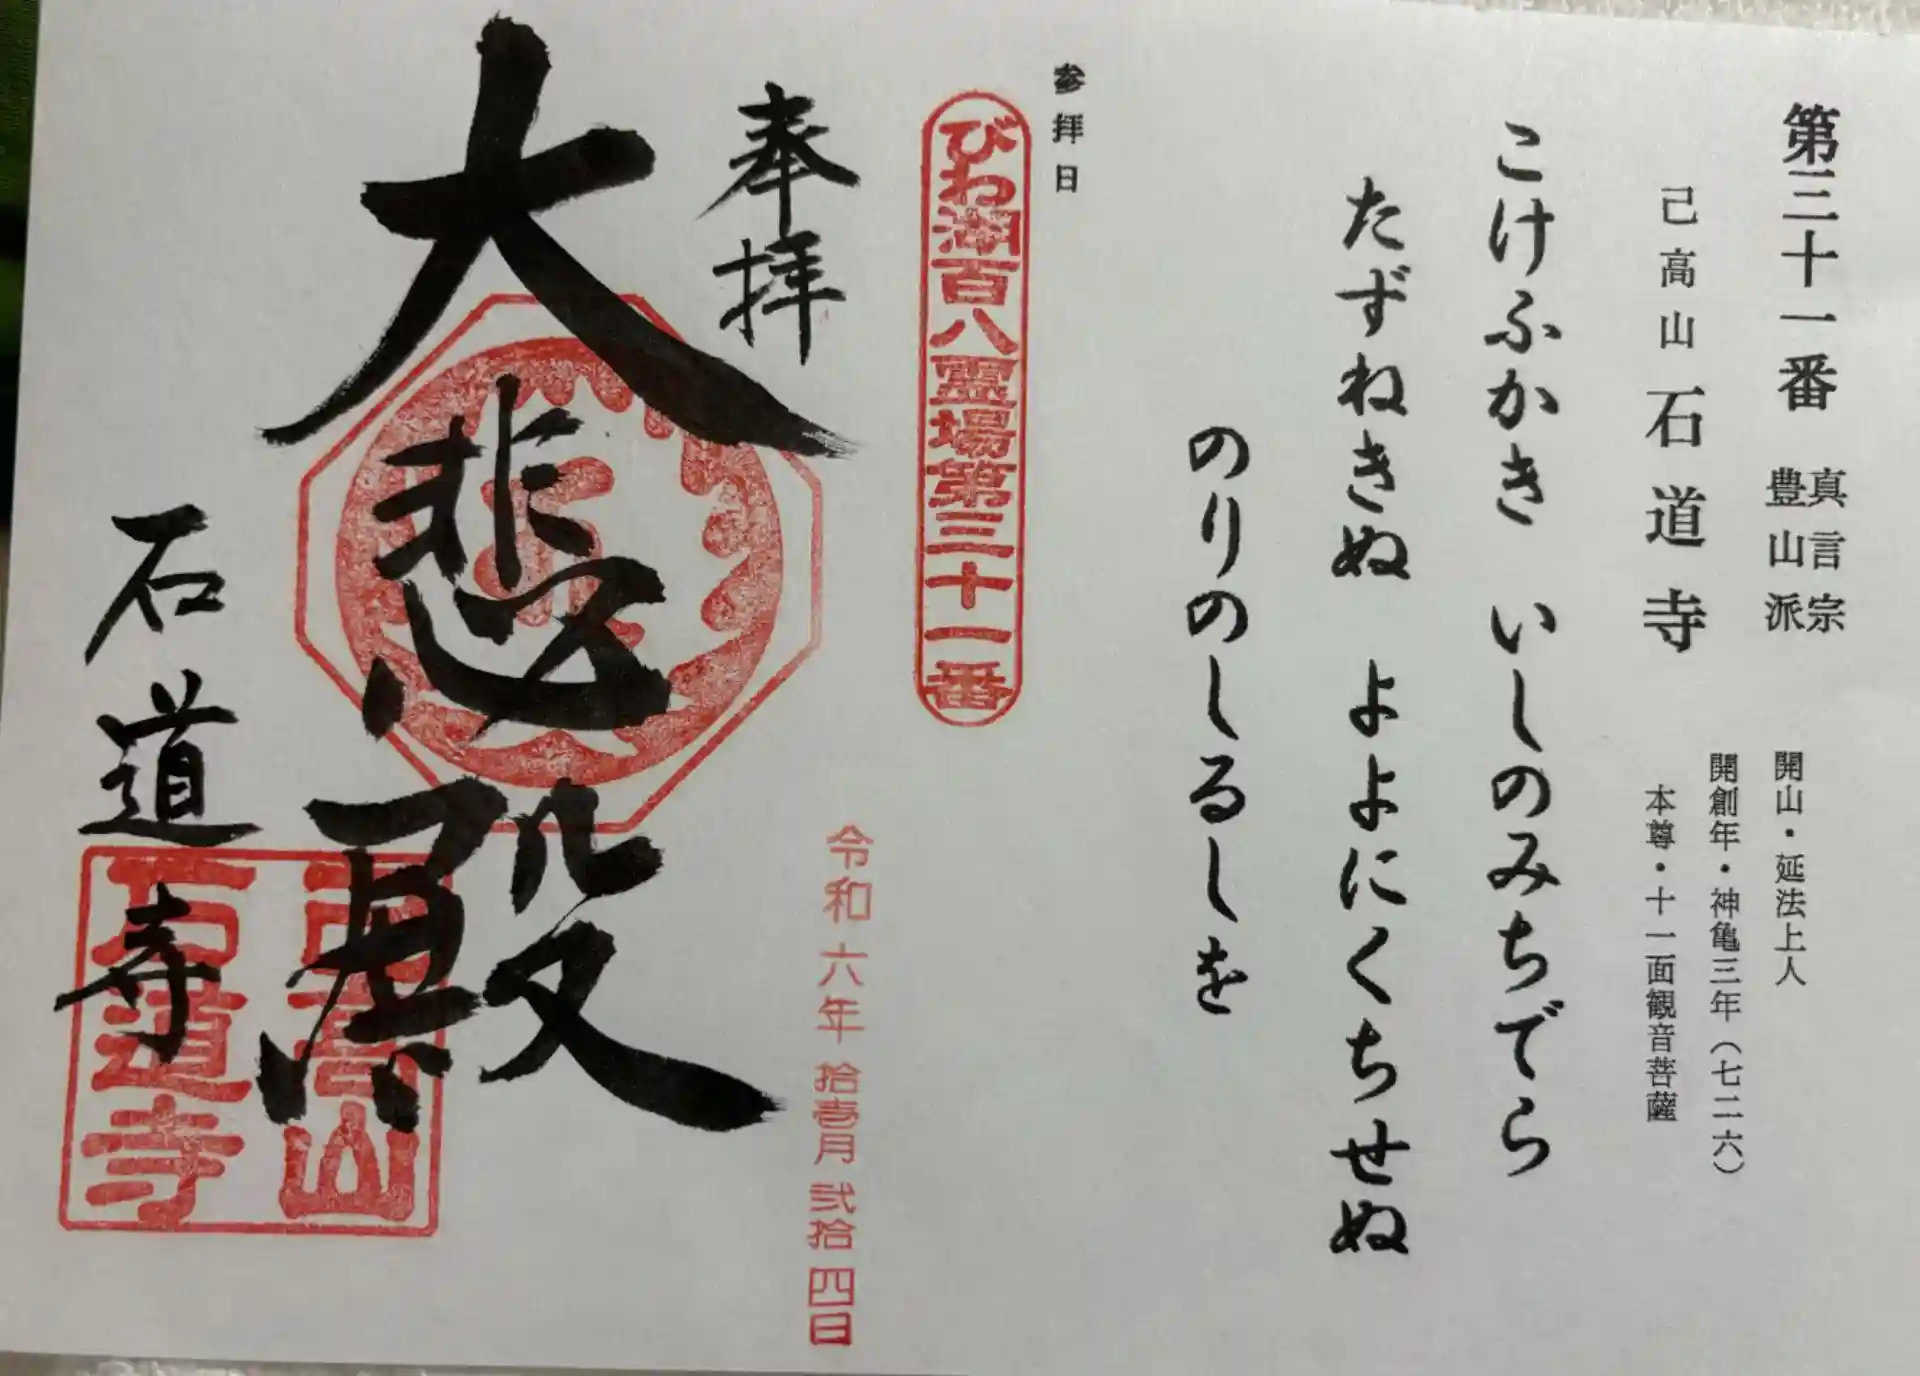 第三十一番
真言宗
豊山派
己高山 石道寺
開山・延法上人
開創年・神亀三年（七二六）
本尊・十一面観音菩薩
こけふかき いしのみちでら
たずねきぬ よよにくちせぬ
のりのしるしを
参拝日
びわ湖百八霊場第三十一番
奉拝
令和六年拾壱月弐拾四日
大悲殿
石道寺
己高山
石道寺